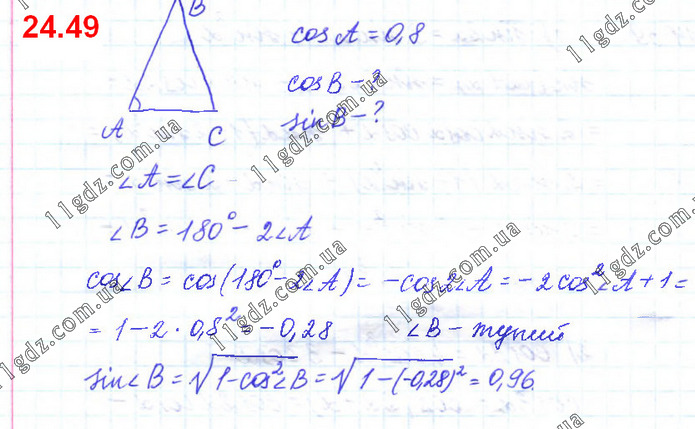 24.49
B
cos A = 0,8
cos B - ?
sin B - ?
A
C
∠A = ∠C
∠B = 180° - 2∠A
cos∠B = cos(180° - 2∠A) = -cos2∠A = -2cos²∠A + 1 =
= 1 - 2 · 0,8² = -0,28 ∠B - тупий
sin∠B = √1-cos²∠B = √1-(-0,28)² = 0,96
11gdz.com.ua
11gdz.com.ua
11gdz.com.ua
11gdz.com.ua
11gdz.com.ua
11gdz.com.ua
11gdz.com.ua
11gdz.com.ua